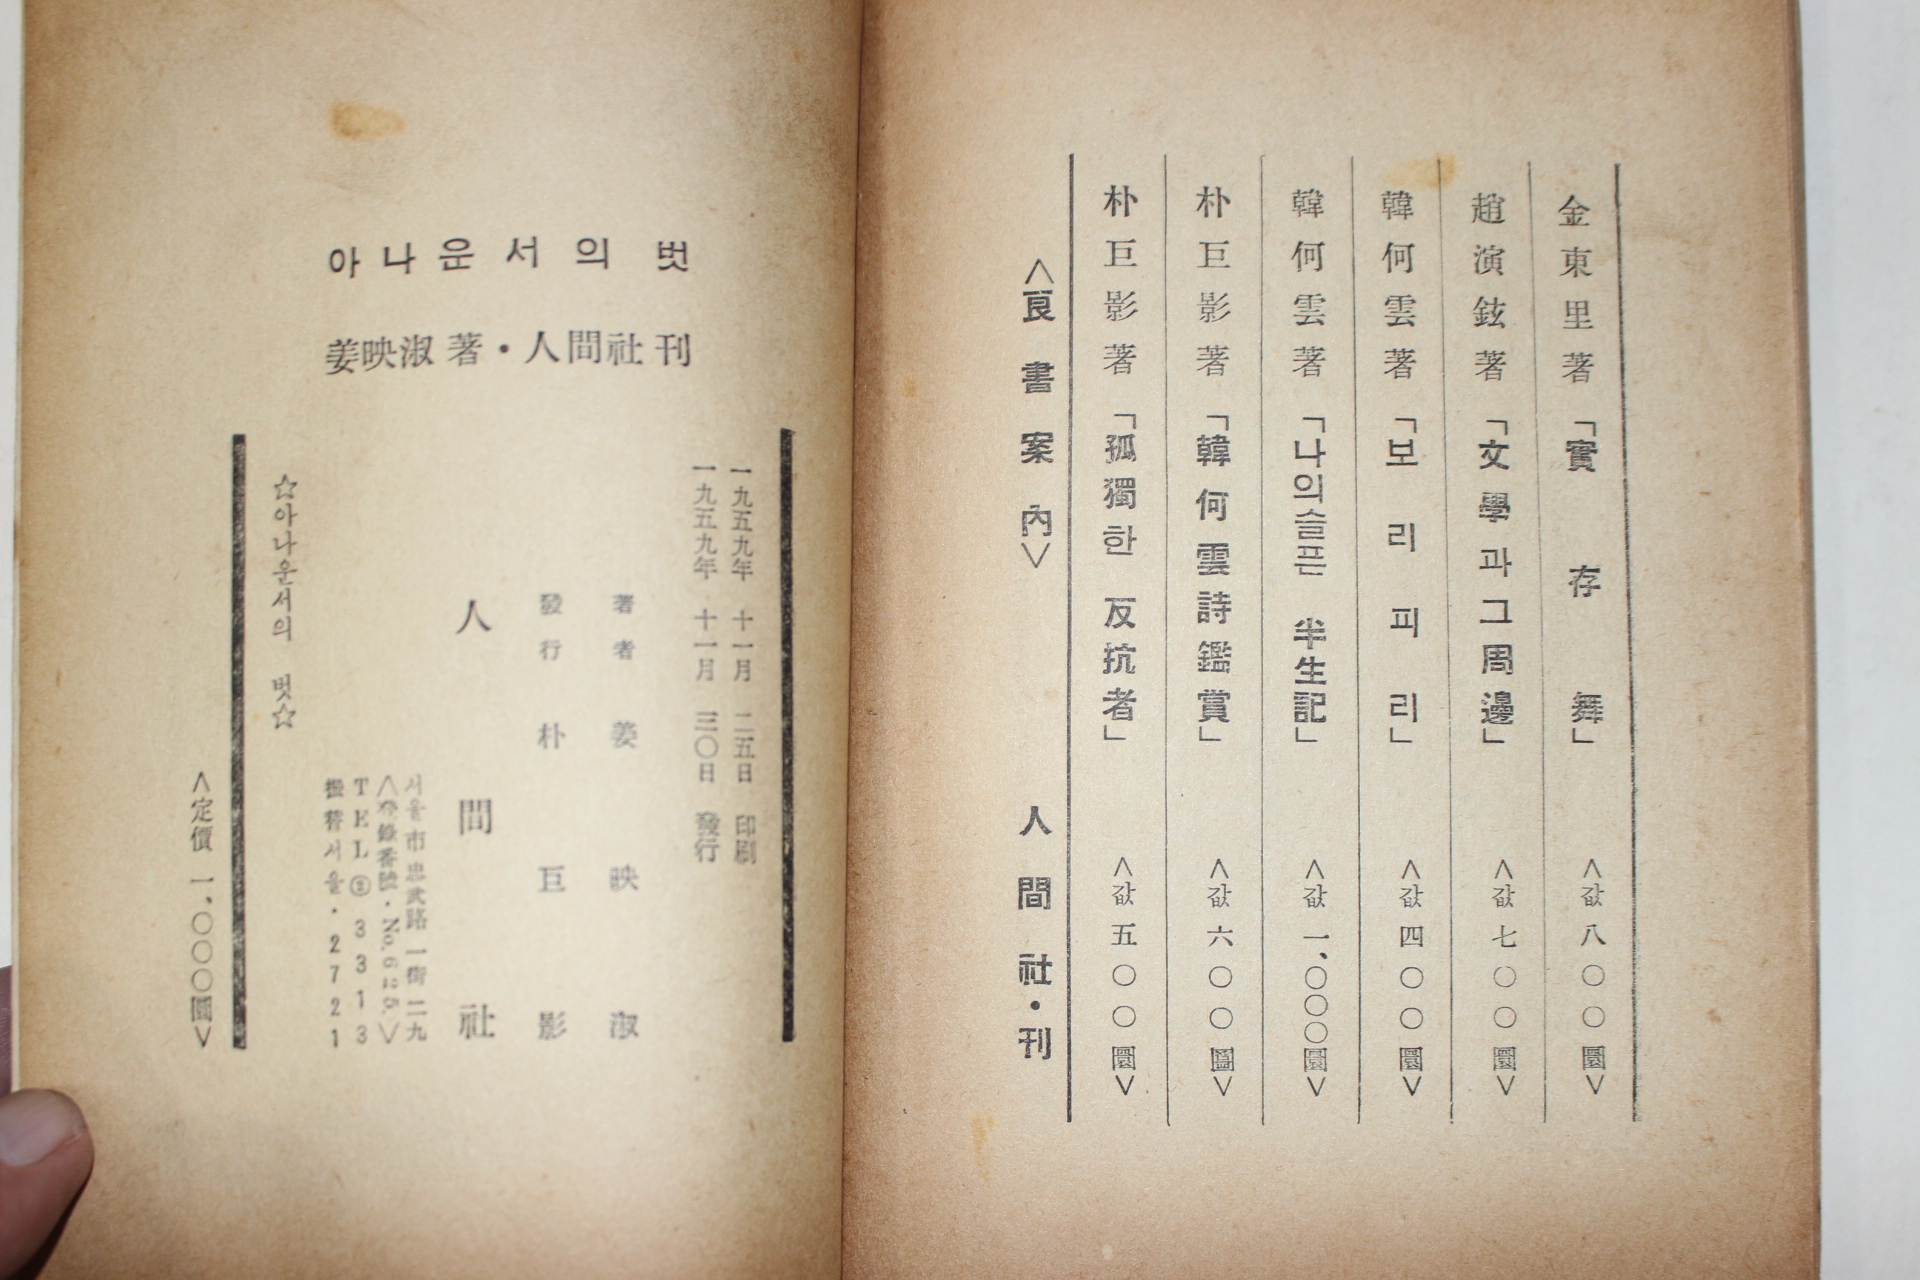 아나운서의 벗
姜映淑 著・人間社 刊
一九五九年 十一月 二五日 印刷
一九五九年 十一月 三〇日 發行
著者 姜映淑
發行 朴巨影
人間社
서울市忠武路一街二九
<登錄番號・No.625.>
TEL②3313
振替서울・2721
☆아나운서의 벗☆
<定價 一、〇〇〇圜>
金東里著「實存舞」<값 八〇〇圜>
趙演鉉著「文學과그周邊」<값 七〇〇圜>
韓何雲著「보리피리」<값 四〇〇圜>
韓何雲著「나의슬픈 半生記」<값 一、〇〇〇圜>
朴巨影著「韓何雲詩鑑賞」<값 六〇〇圜>
朴巨影著「孤獨한 反抗者」<값 五〇〇圜>
<良書案內> 人間社・刊